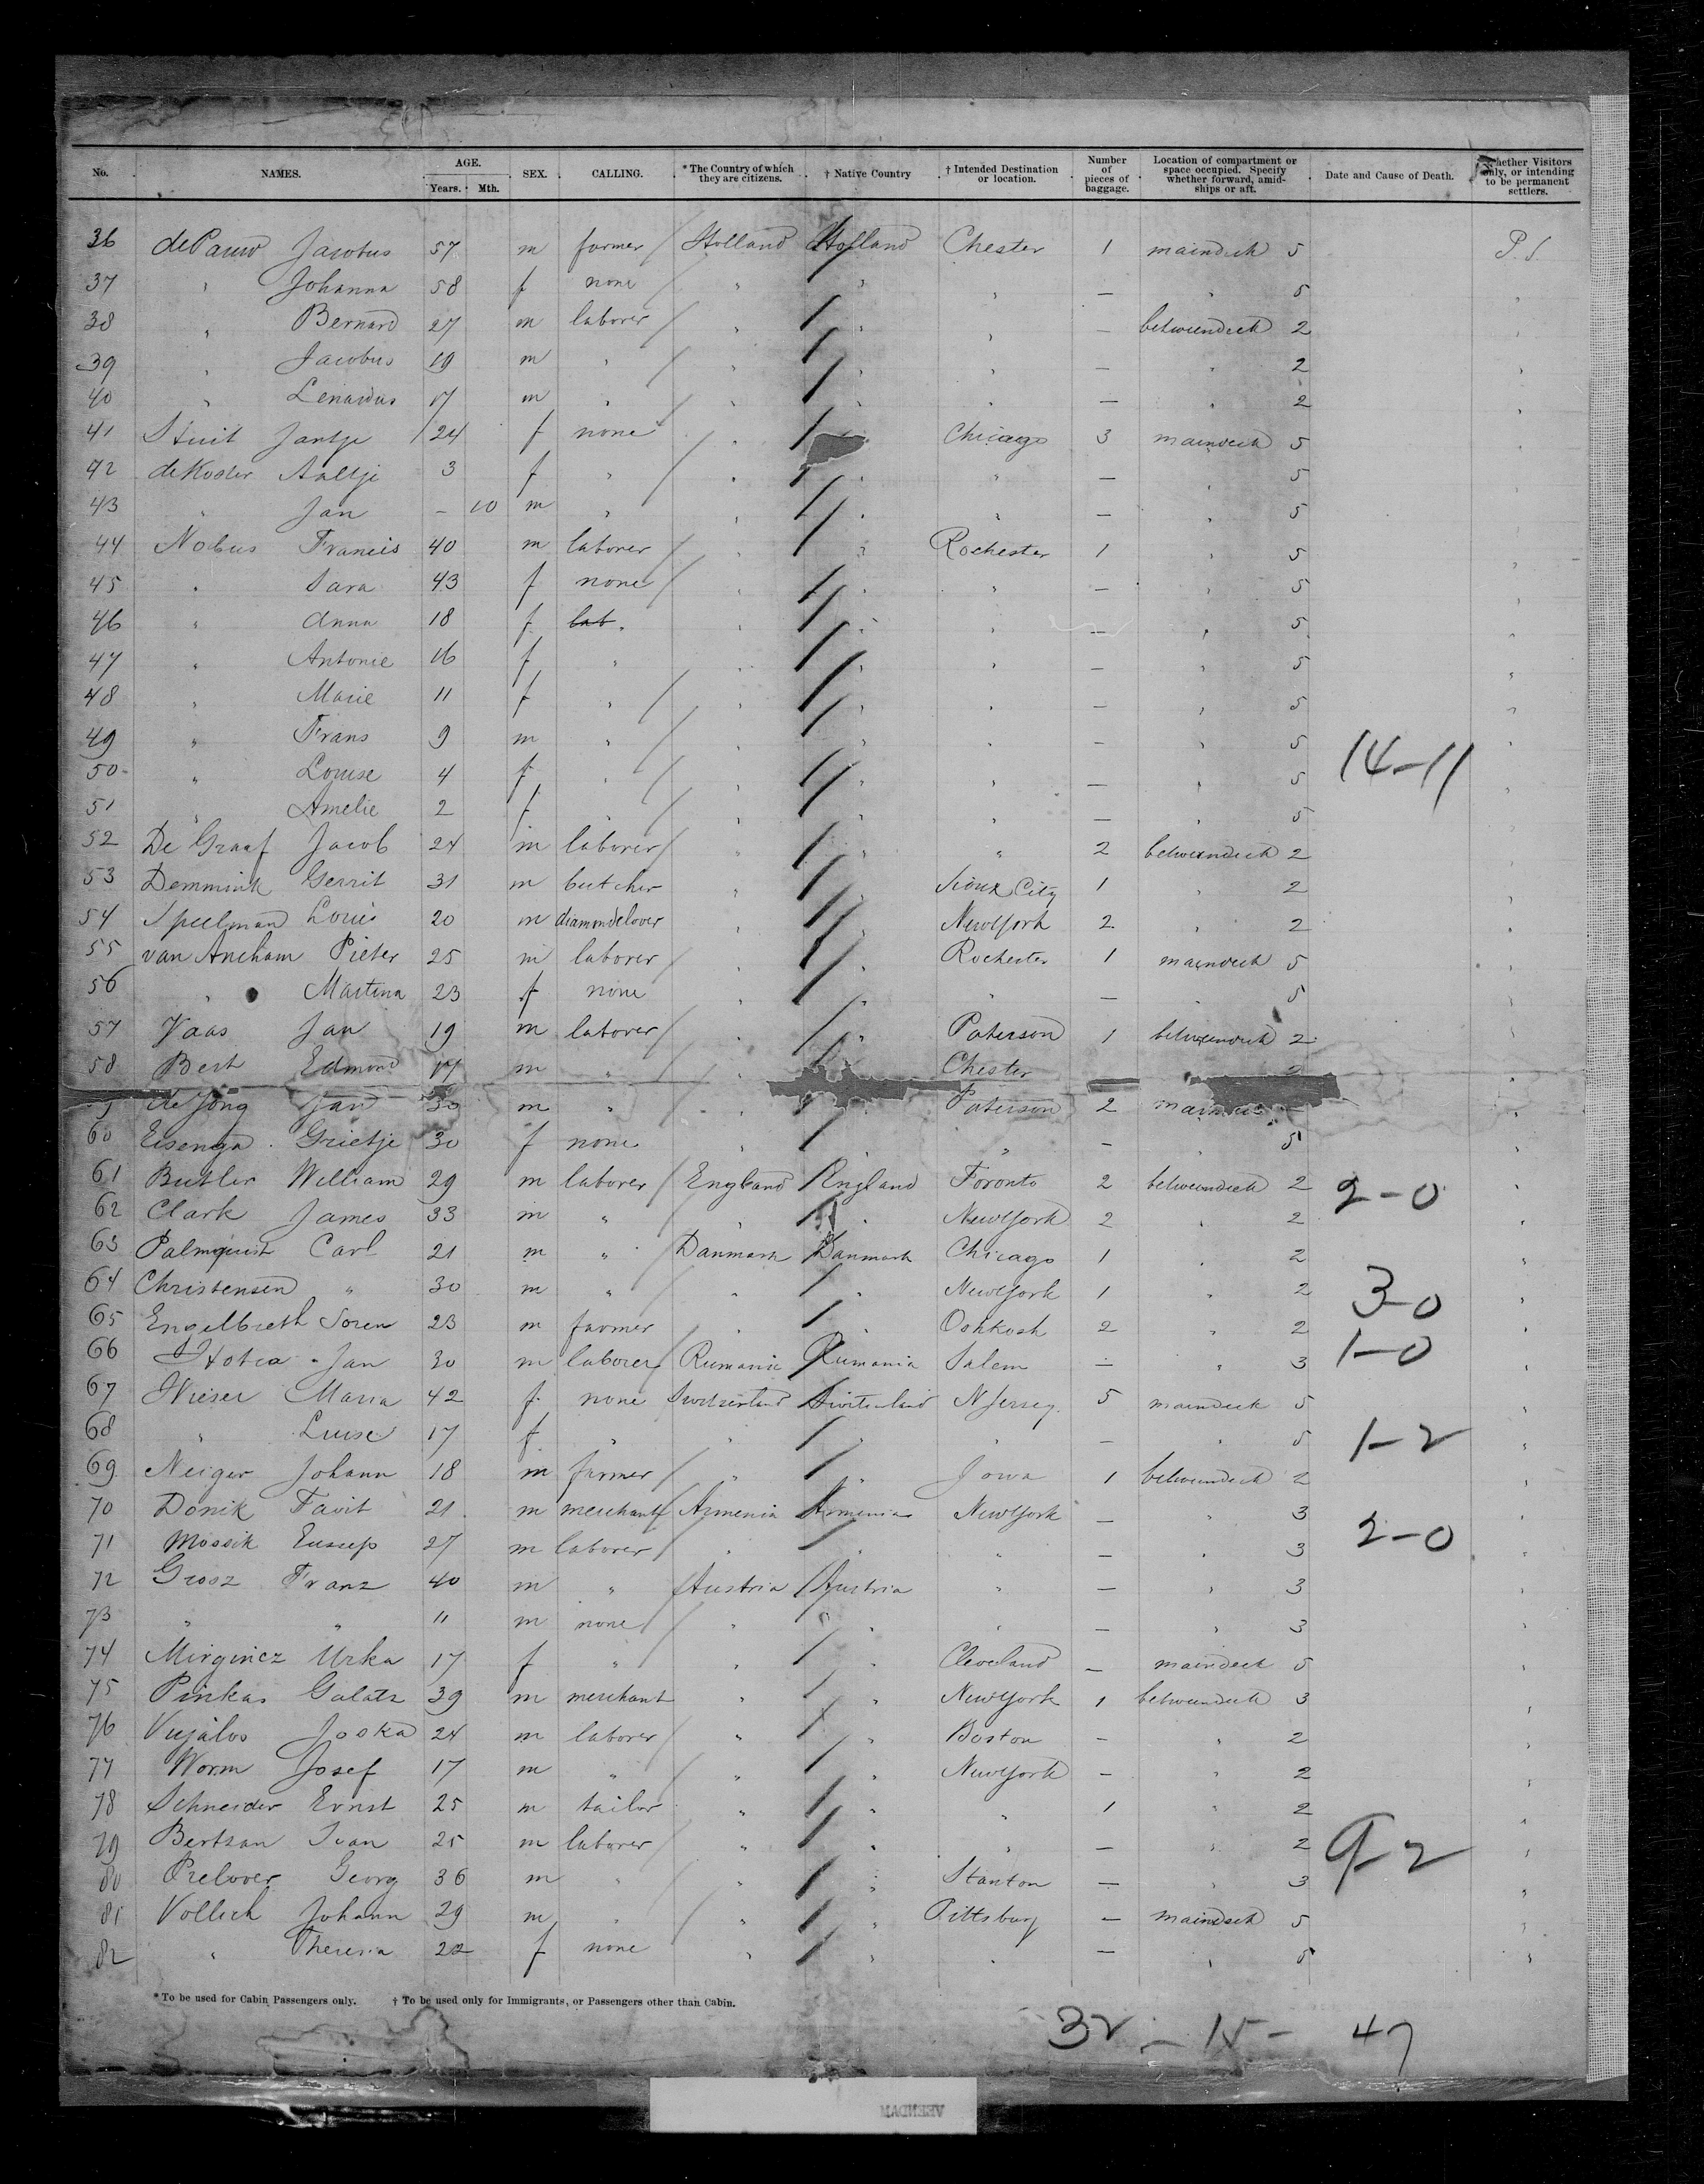 No. NAMES. AGE. Years. Mth. SEX. CALLING. * The Country of which they are citizens. † Native Country † Intended Destination or location. Number of pieces of baggage. Location of compartment or space occupied. Specify whether forward, amidships or aft. Date and Cause of Death. Whether Visitors only, or intending to be permanent settlers.
36 dePauw Jacobus 57 m farmer Holland Holland Chester 1 maindeck 5 P.S.
37 " Johanna 58 f none " " " — " 5 "
38 " Bernard 27 m laborer " " " — betweendeck 2 "
39 " Jacobus 19 m " " " " — " 2 "
40 " Lenardus 17 m " " " " — " 2 "
41 Stuit Jantje 24 f none " Chicago 3 maindeck 5 "
42 deKoster Aaltje 3 f " " " " — " 5 "
43 " Jan – 10 m " " " " — " 5 "
44 Nobus Francis 40 m laborer " " Rochester 1 " 5 "
45 " Sara 43 f none " " " — " 5 "
46 " Anna 18 f lab. " " " — " 5 "
47 " Antonie 16 f " " " " — " 5 "
48 " Marie 11 f " " " " — " 5 "
49 " Frans 9 m " " " " — " 5 "
50 " Louise 4 f " " " " — " 5 14–11 "
51 " Amelie 2 f " " " " — " 5 "
52 De Graaf Jacob 24 m laborer " " " 2 betweendeck 2 "
53 Demmink Gerrit 31 m butcher " " Sioux City 1 " 2 "
54 Speelman Louis 20 m " " NewYork 2 " 2 "
55 van Pieter 25 m laborer " " Rochester 1 maindeck 5 "
56 " Martina 23 f none " " " — " 5 "
57 Vaas Jan 19 m laborer " " Paterson 1 betweendeck 2 "
58 Bert Edmond 17 m " " Chester "
de Jong Jan 30 m " " Paterson 2 "
60 Eisenga Grietje 30 f none " " — " 5 "
61 Butler William 29 m laborer England England Toronto 2 betweendeck 2 2–0 "
62 Clark James 33 m " " " NewYork 2 " 2 "
63 Palmquist Carl 21 m " Danmark Danmark Chicago 1 " 2 "
64 Christensen " 30 m " " " NewYork 1 " 2 3–0 "
65 Engelbreth Soren 23 m farmer " " Oshkosh 2 " 2 "
66 Jan 30 m laborer Rumania Rumania Salem — " 3 1–0 "
67 Wieser Maria 42 f none Switzerland Switzerland N Jersey 5 maindeck 5 "
68 " Luise 17 f " " " " — " 5 1–2 "
69 Neiger Johann 18 m farmer " " Iowa 1 betweendeck 2 "
70 Donik Tavit 21 m merchant Armenia Armenia NewYork — " 3 "
71 Mossik 27 m laborer " " " — " 3 2–0 "
72 Grosz Franz 40 m " Austria Austria " — " 3 "
73 " " 11 m none " " " — " 3 "
74 Urka 17 f " " " Cleveland — maindeck 5 "
75 Pinkas Galatz 39 m merchant " " NewYork 1 betweendeck 3 "
76 Vujalos Joska 24 m laborer " " Boston – " 2 "
77 Worm Josef 17 m " " " NewYork – " 2 "
78 Schneider Ernst 25 m tailor " " " 1 " 2 "
79 Bertsan Ivan 25 m laborer " " " — " 2 9–2 "
80 Georg 36 m " " " Stanton — " 3 "
81 Vollich Johann 29 m " " " Pittsburg — maindeck 5 "
82 " Theresia 22 f none " " " — " 5 "
* To be used for Cabin Passengers only. † To be used only for Immigrants, or Passengers other than Cabin.
32 – 15 – 47